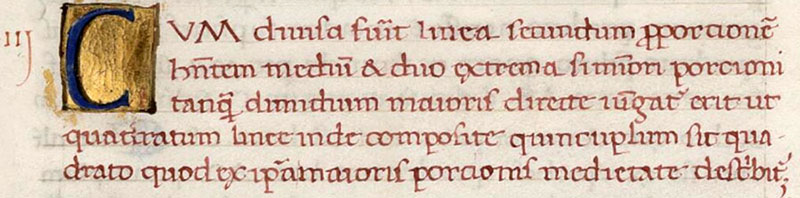 iij CUM diuisa fu̅it linea secundum ꝓporcione̅
hn̅tem mediu̅ & duo extrema si mi̅ori porcioni
tanq̅ dimidium maioris directe iu̅gat̉ erit ut
quadratum linee inde composite quincuplum sit qua-
drato quod ex ip̅a maioris porcionis medietate desc̉bit̉;